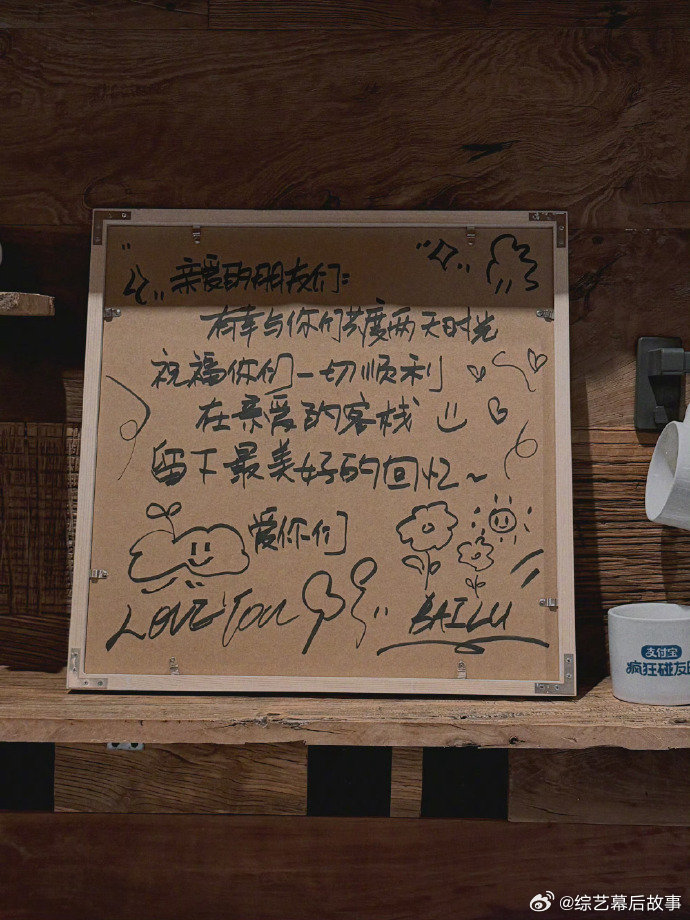 亲爱的朋友们:
有幸与你们共度两天时光
祝福你们一切顺利
在亲爱的客栈
留下最美好的回忆~
爱你们
LOVE YOU
BAILU
支付宝
疯狂碰友
@综艺幕后故事